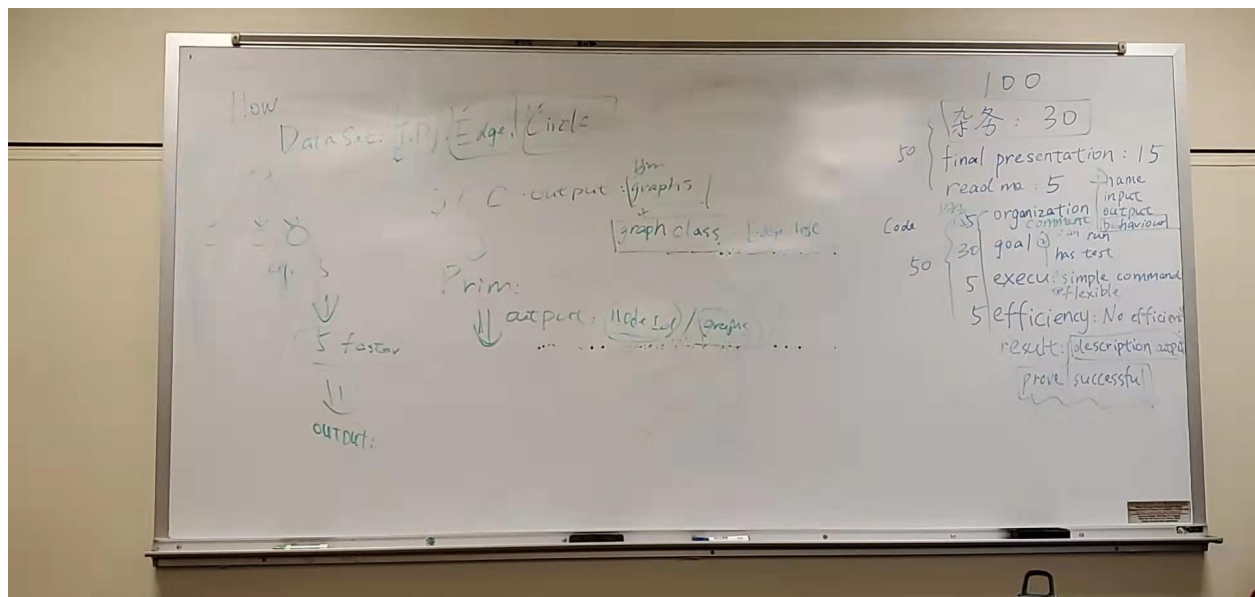 How
DataSet: Edge, Circle
C output: graphs
graph class
Prim:
output: Node /
5 faster
output:
100
50
杂务: 30
final presentation: 15
read me: 5
name
input
output
behaviour
Code
50
5 organization
comment
30 goal
can run
has test
5 execu: simple command
flexible
5 efficiency: No efficient
result: description
prove successful